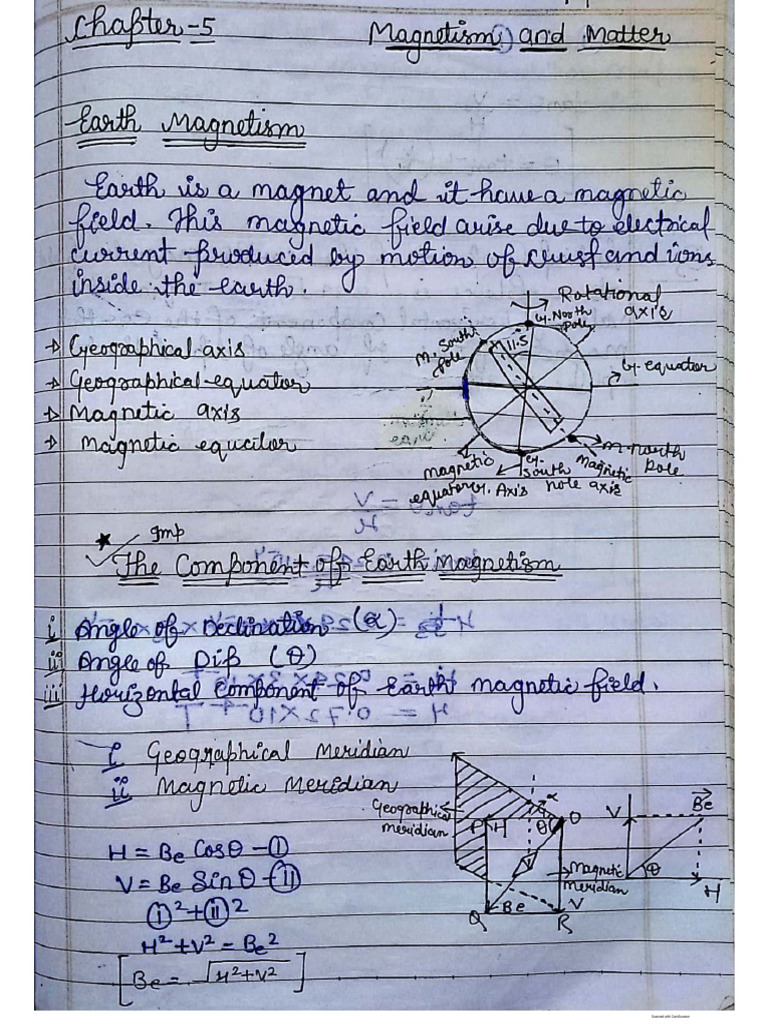 Chapter-5
Magnetism and Matter
Earth Magnetism
Earth is a magnet and it have a magnetic
field. This magnetic field arise due to electrical
current produced by motion of and ions
inside the earth.
→ Geographical axis
→ Geographical equator
→ Magnetic axis
→ Magnetic equator
Rotational
axis
G. North
pole
M. South
pole
11.5
G. equator
M. north
pole
Magnetic
pole axis
G.
South
Magnetic
equator
G. Axis
Imp
The Component off Earth Magnetism
i Angle of Declination (α)
ii Angle of Dip (θ)
iii Horizontal Component of Earth magnetic field.
i Geographical Meridian
ii Magnetic Meridian
H = Be Cosθ - (I)
V = Be Sin θ - (II)
(I)² + (II)²
H² + V² = Be²
[Be = √H² + V²]
Geographical
meridian
α
P H θ O
Magnetic
meridian
V
Q Be R
V Be
θ
H
Scanned with CamScanner